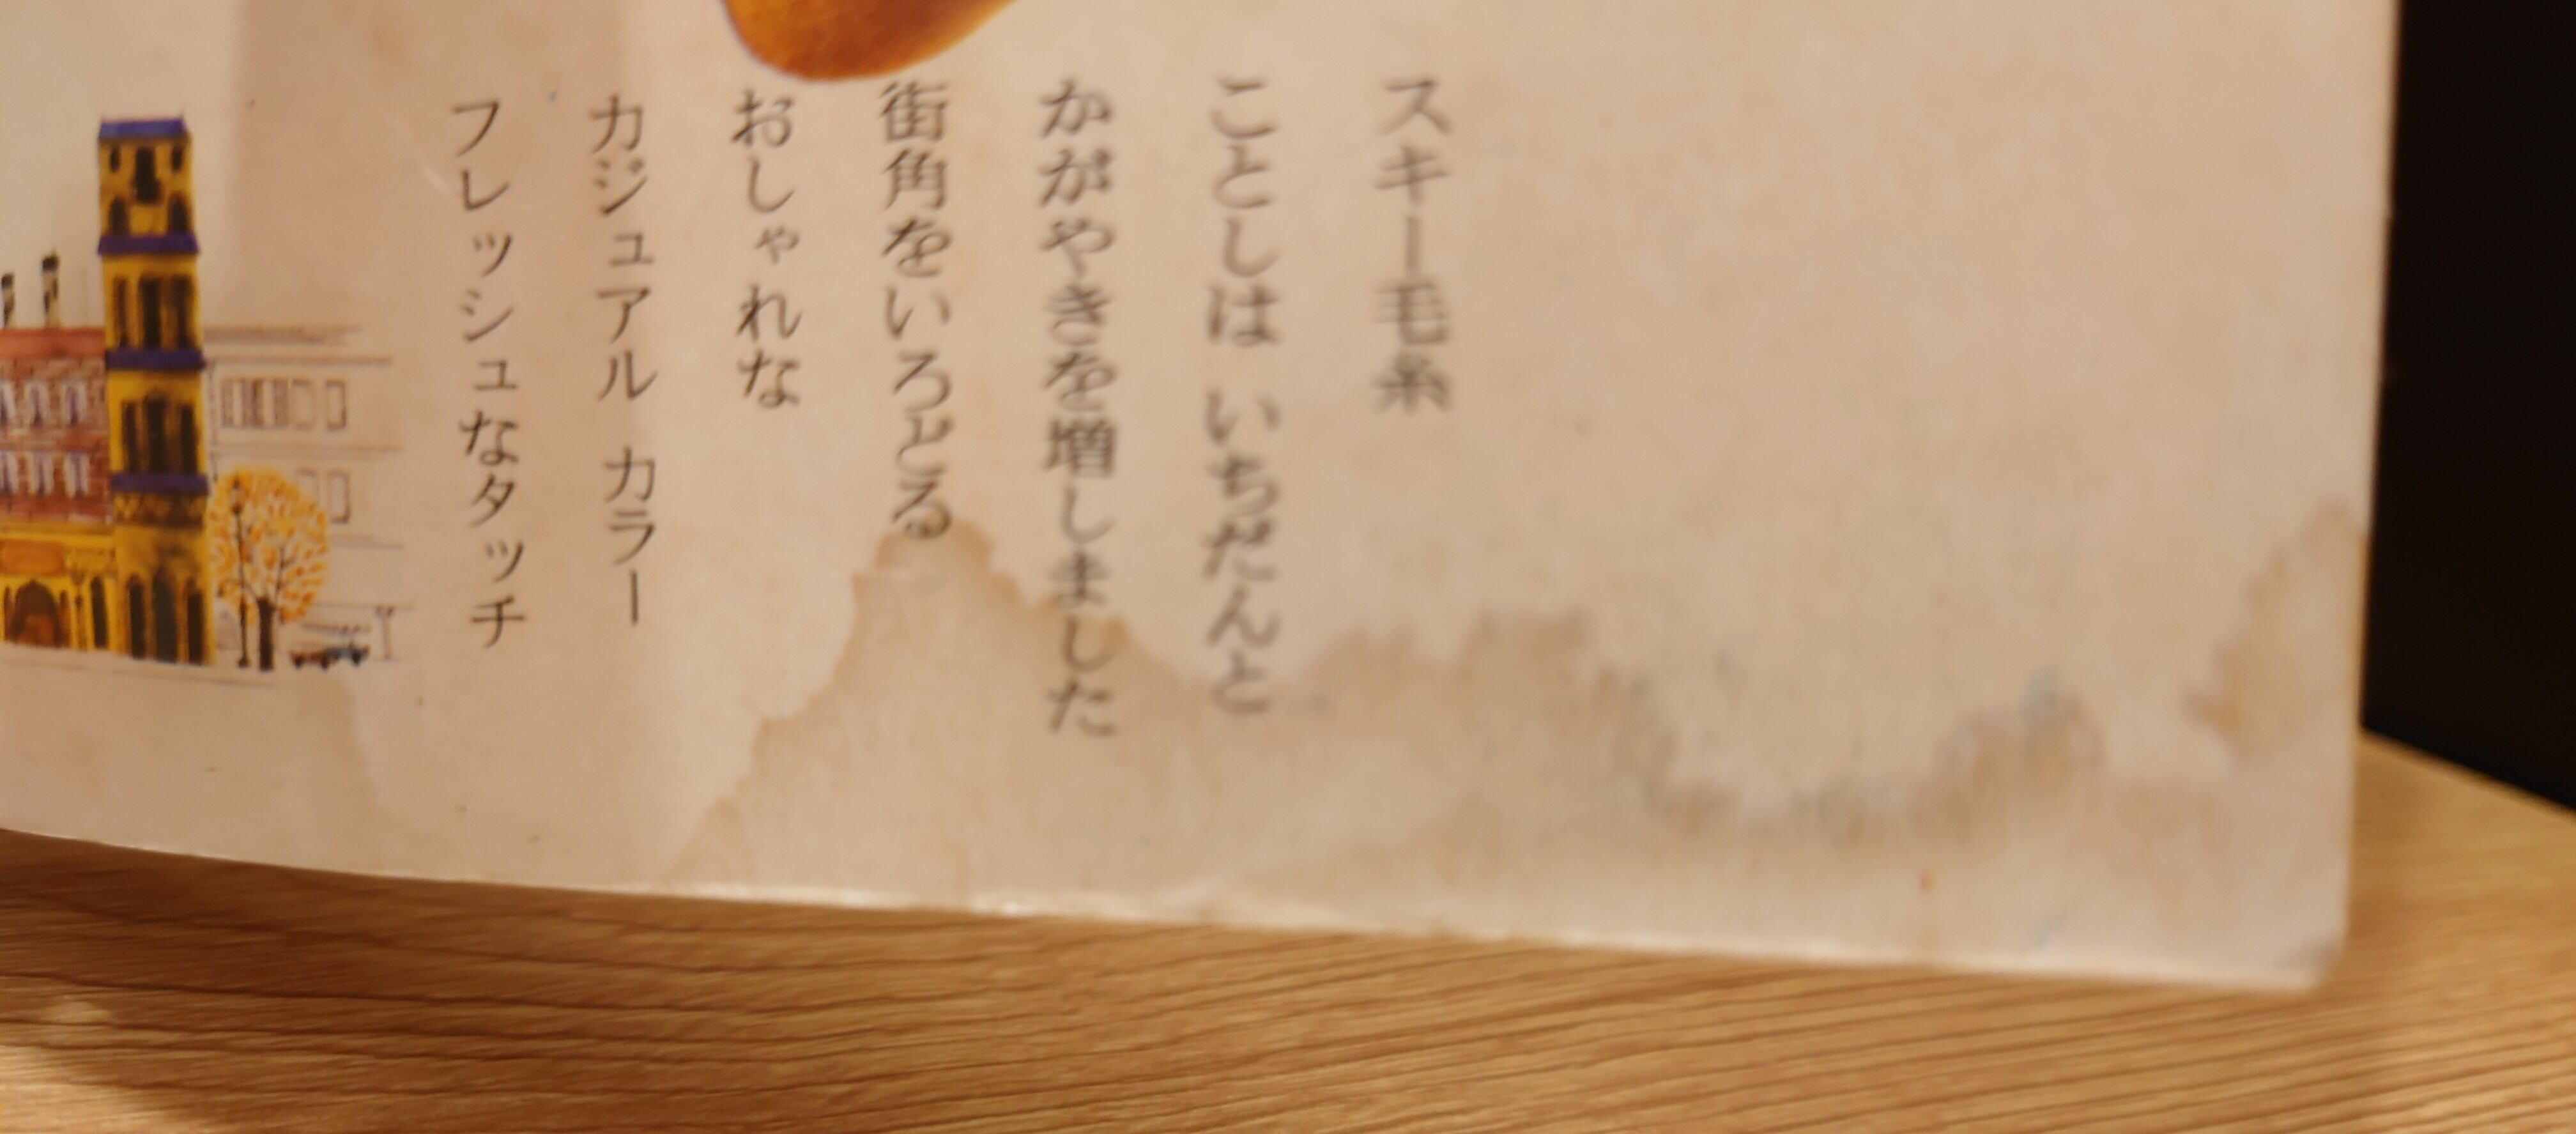 スキー毛糸
ことしは いちだんと
かがやきを増しました
街角をいろどる
おしゃれな
カジュアル カラー
フレッシュなタッチ